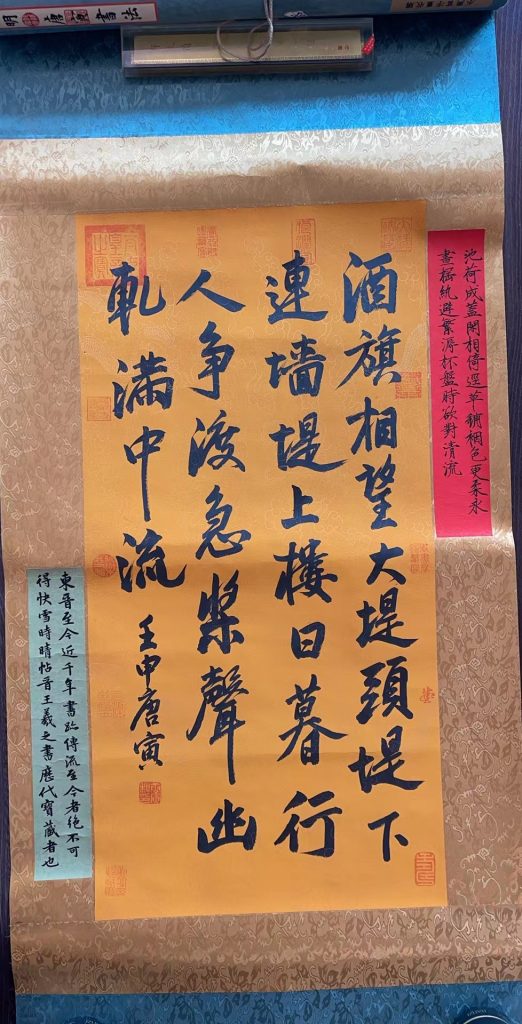 明唐寅書法
池荷成蓋閑相倚逕草鋪裀色更柔永
晝搖紈避繁溽杯盤時欲對清流
酒旗相望大堤頭堤下
連墻堤上樓日暮行
人争渡急槳聲幽
軋滿中流
壬申唐寅
東晉至今近千年書跡傳流至今者絕不可
得快雪時晴帖晉王羲之書歷代寶藏者也